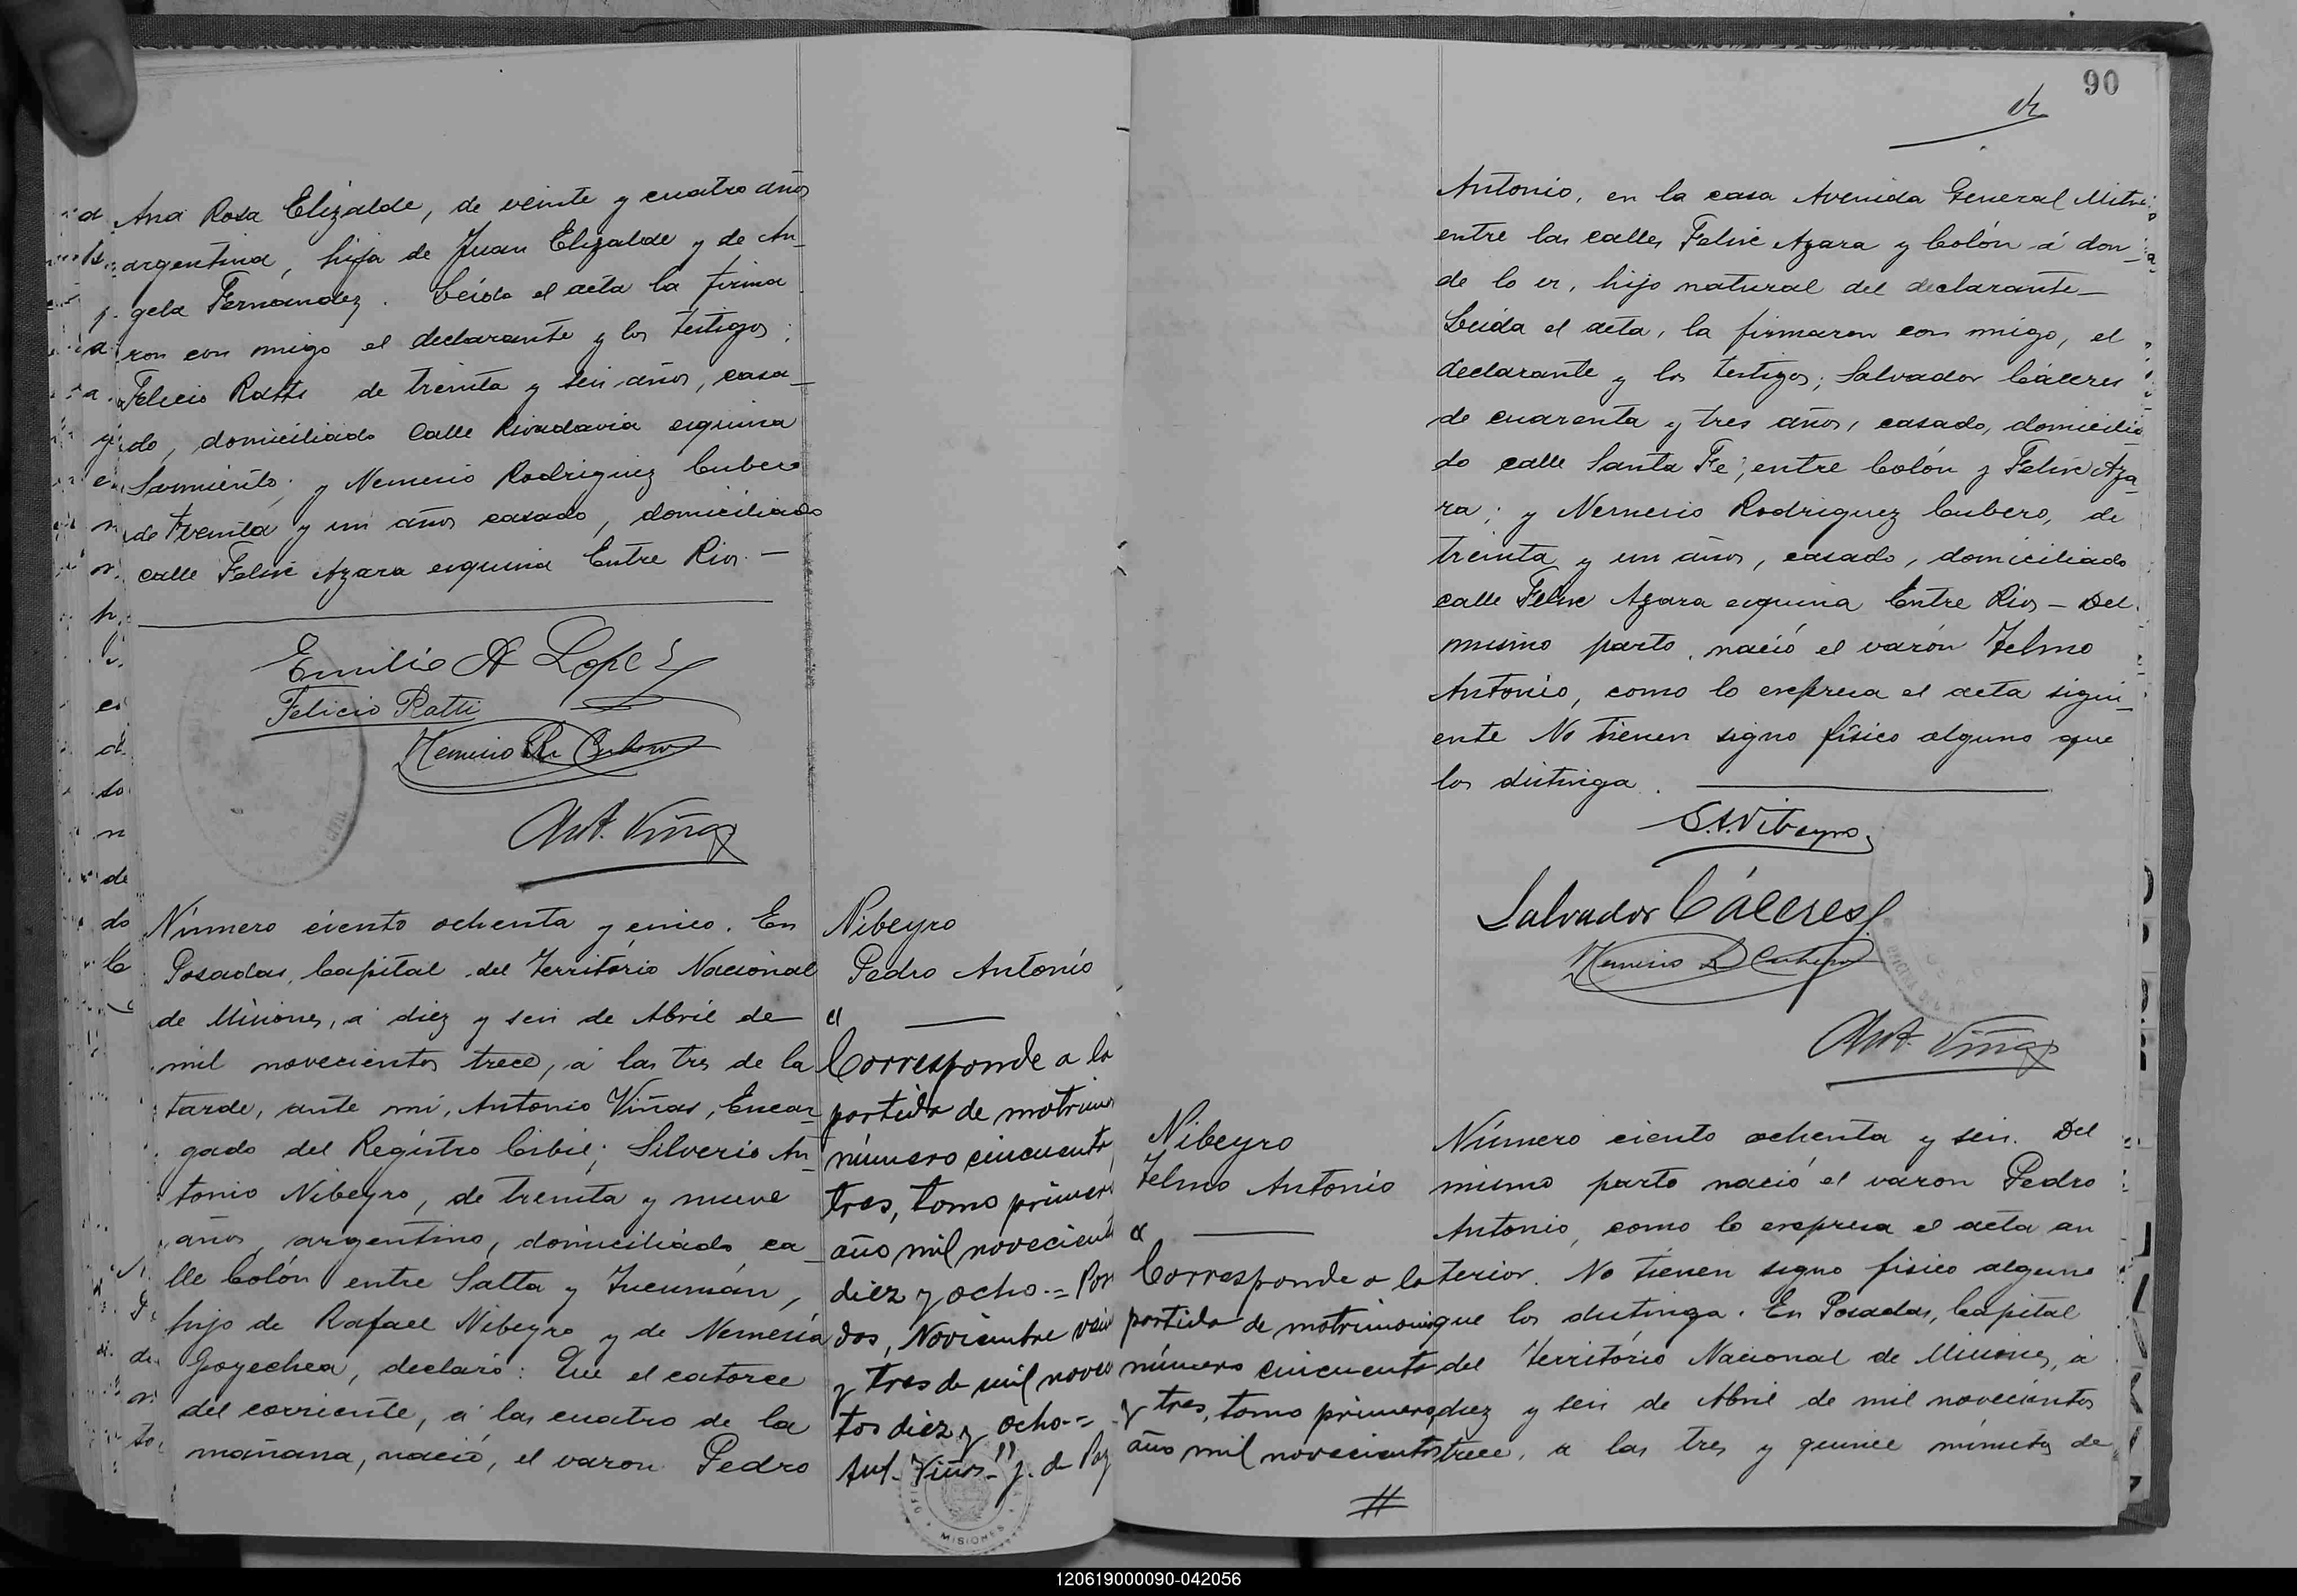 Ana Rosa Elizalde, de veinte y cuatro años
argentina, hija de Juan Elizalde y de An_
gela Fernández. Leida el acta la firma
ron con migo el declarante y los testigos:
Felicio Ratti de treinta y seis años, casa_
do, domiciliado Calle Rivadavia esquina
Sarmiento; y Nemesio Rodriguez Cubero
de treinta y un años casado, domiciliado
calle Felix Azara esquina Entre Rios. —
Emilio A Lopez
Felicio Ratti
Nemesio R. Cubero
Ant. Viñas
Número ciento ochenta y cinco. En
Posadas, Capital del Territorio Nacional
de Misiones, á diez y seis de Abril de
mil novecientos trece, á las tres de la
tarde, ante mi, Antonio Viñas, Encar_
gado del Registro Cibil; Silverio An_
tonio Nibeyro, de treinta y nueve
años, argentino, domiciliado ca_
lle Colón entre Salta y Tucumán,
hijo de Rafael Nibeyro y de Nemesia
Goyechea, declaró: Que el catorce
del corriente, á las cuatro de la
mañana, nació, el varon Pedro
Nibeyro
Pedro Antonio
Corresponde a la
partida de matrimo
número cincuenta
tres, tomo primero
año mil novecient
diez y ocho.= Pos
das, Noviembre vein
y tres de mil novec
tos diez y ocho.=
Ant. Viñas J. de Paz
MISIONES
90
Antonio, en la casa Avenida General Mitre
entre las calles Felix Azara y Colón á don_
de lo es, hijo natural del declarante_
Leida el acta, la firmaron con migo, el
declarante y los testigos; Salvador Cáceres
de cuarenta y tres años, casado, domicilia
do calle Santa Fe, entre Colón y Felix Aza_
ra; y Nemesio Rodriguez Cubero, de
treinta y un años, casado, domiciliado
calle Felix Azara esquina Entre Rios – Del
mismo parto, nació el varón Telmo
Antonio, como lo expresa el acta sigui_
ente No tienen signo físico alguno que
los distinga.
S.A. Nibeyro
Salvador Cáceres
Nemesio R Cubero
Ant. Viñas
Nibeyro
Telmo Antonio
Corresponde a la
partida de matrimonio
número cincuenta
y tres, tomo primero,
año mil novecientos
#
Número ciento ochenta y seis. Del
mismo parto nació el varon Pedro
Antonio, como lo expresa el acta an
terior. No tienen signo fisico alguno
que los distinga. En Posadas, Capital
del Territorio Nacional de Misiones, á
diez y seis de Abril de mil novecientos
trece, a las tres y quince minutos de
120619000090-042056